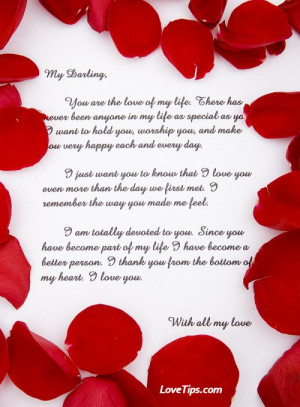 My Darling,
You are the love of my life. There has
never been anyone in my life as special as yo
I want to hold you, worship you, and make
you very happy each and every day.
I just want you to know that I love you
even more than the day we first met. I
remember the way you made me feel.
I am totally devoted to you. Since you
have become part of my life I have become a
better person. I thank you from the bottom of
my heart. I love you.
With all my love
LoveTips.com